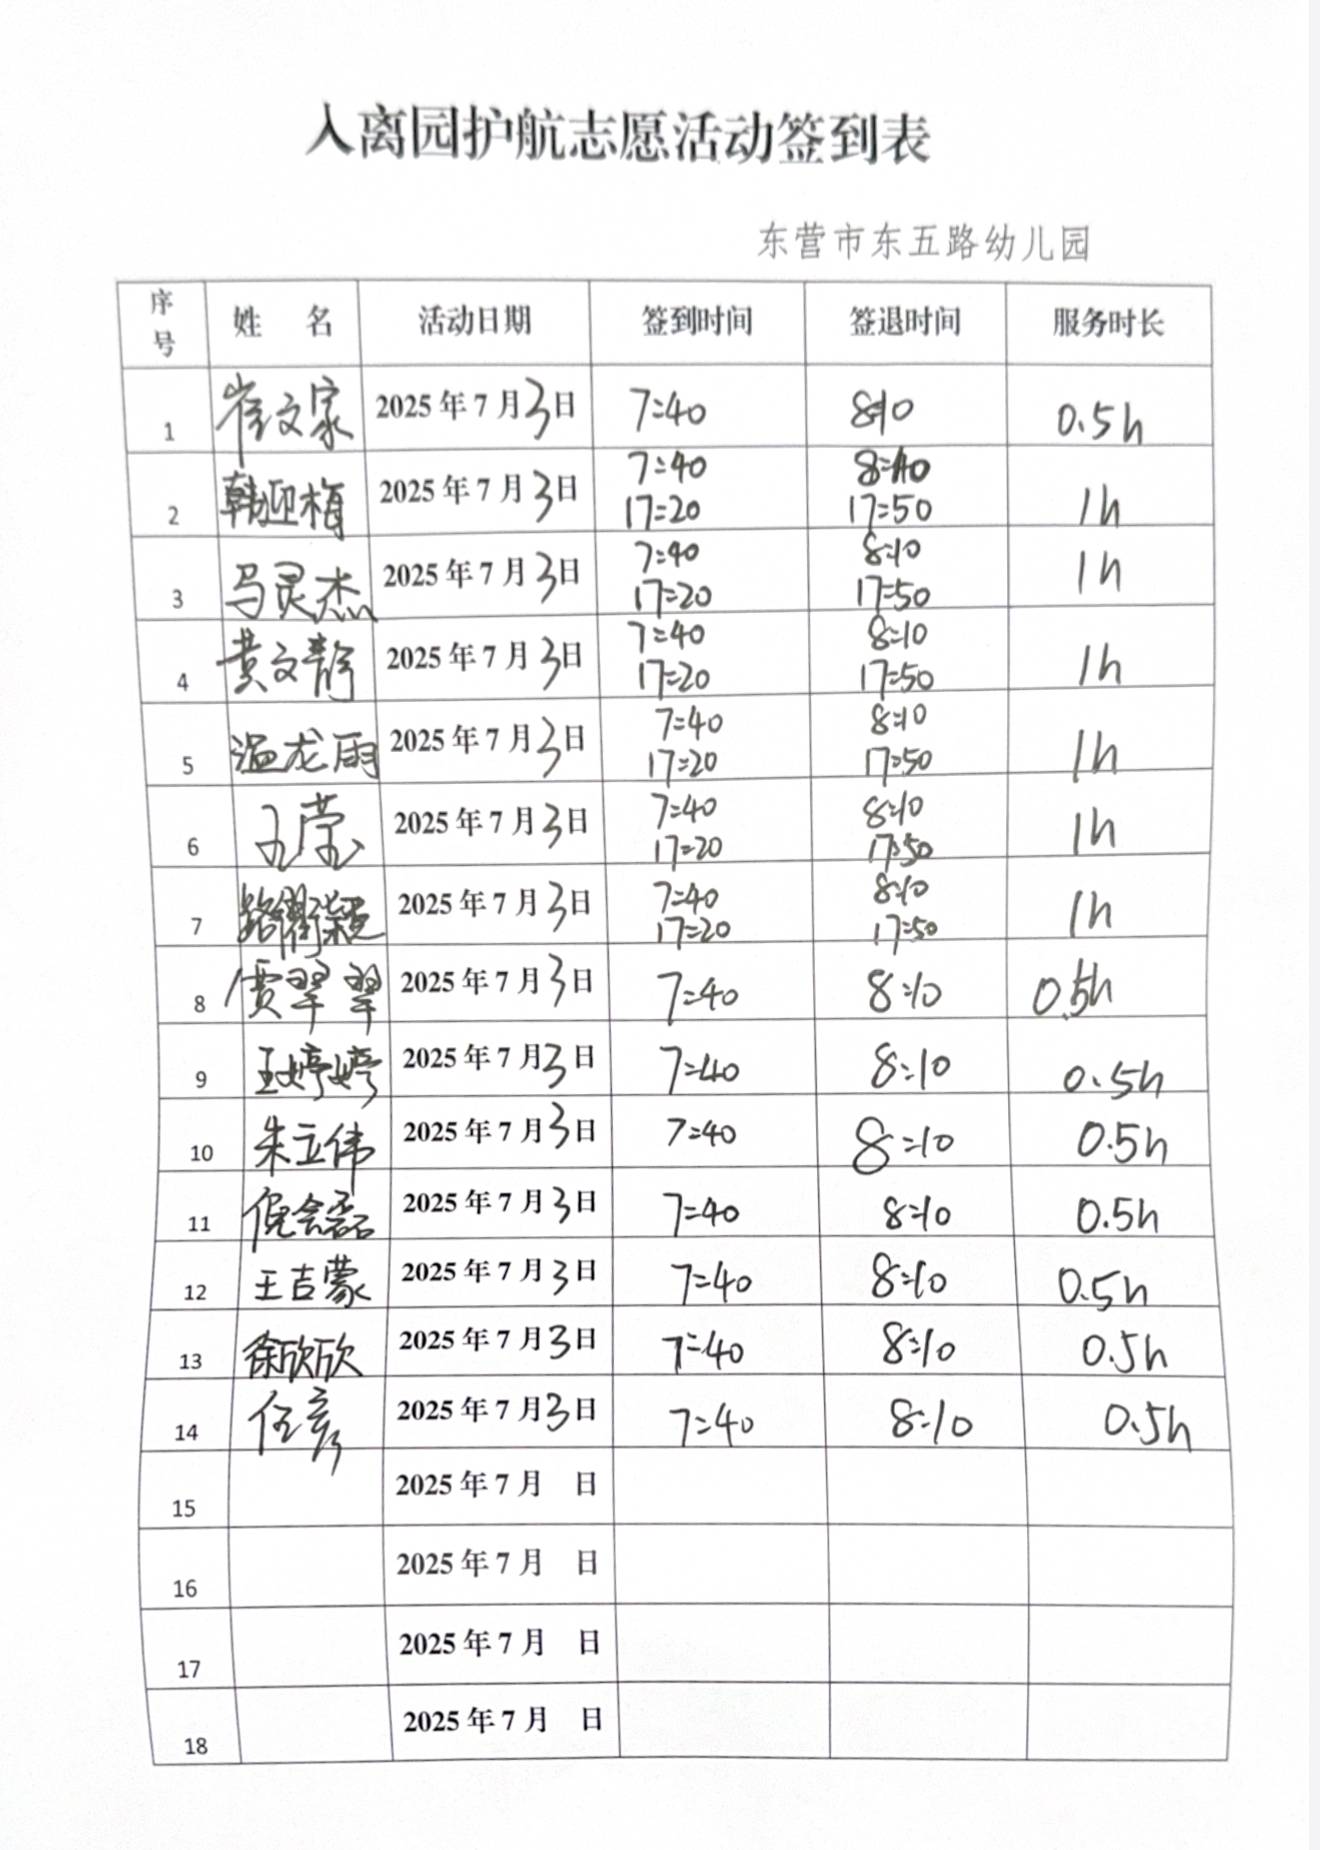 入离园护航志愿活动签到表
东营市东五路幼儿园
序号 姓 名 活动日期 签到时间 签退时间 服务时长
1 崔文家 2025年7月3日 7:40 8:10 0.5h
2 韩迎梅 2025年7月3日 7:40 17:20 8:10 17:50 1h
3 马灵杰 2025年7月3日 7:40 17:20 8:10 17:50 1h
4 黄文静 2025年7月3日 7:40 17:20 8:10 17:50 1h
5 温龙雨 2025年7月3日 7:40 17:20 8:10 17:50 1h
6 2025年7月3日 7:40 17:20 8:10 17:50 1h
7 2025年7月3日 7:40 17:20 8:10 17:50 1h
8 贾翠翠 2025年7月3日 7:40 8:10 0.5h
9 王婷婷 2025年7月3日 7:40 8:10 0.5h
10 朱立伟 2025年7月3日 7:40 8:10 0.5h
11 倪会磊 2025年7月3日 7:40 8:10 0.5h
12 王吉蒙 2025年7月3日 7:40 8:10 0.5h
13 徐欣欣 2025年7月3日 7:40 8:10 0.5h
14 任彦 2025年7月3日 7:40 8:10 0.5h
15 2025年7月 日
16 2025年7月 日
17 2025年7月 日
18 2025年7月 日